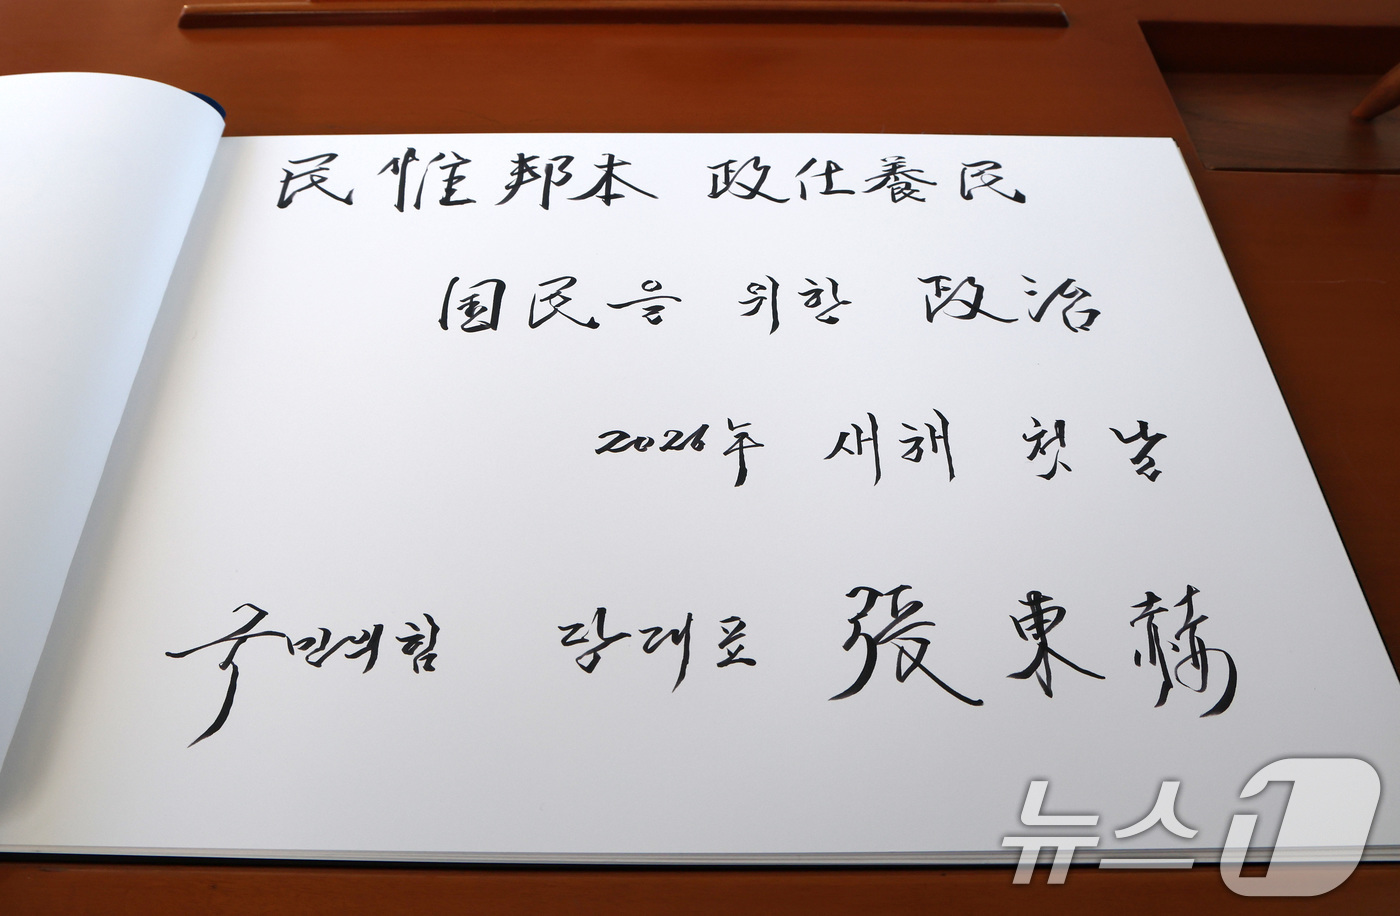 民惟邦本 政在養民
国民을 위한 政治
2026年 새해 첫 날
국민의힘 당대표 張東赫
뉴스1